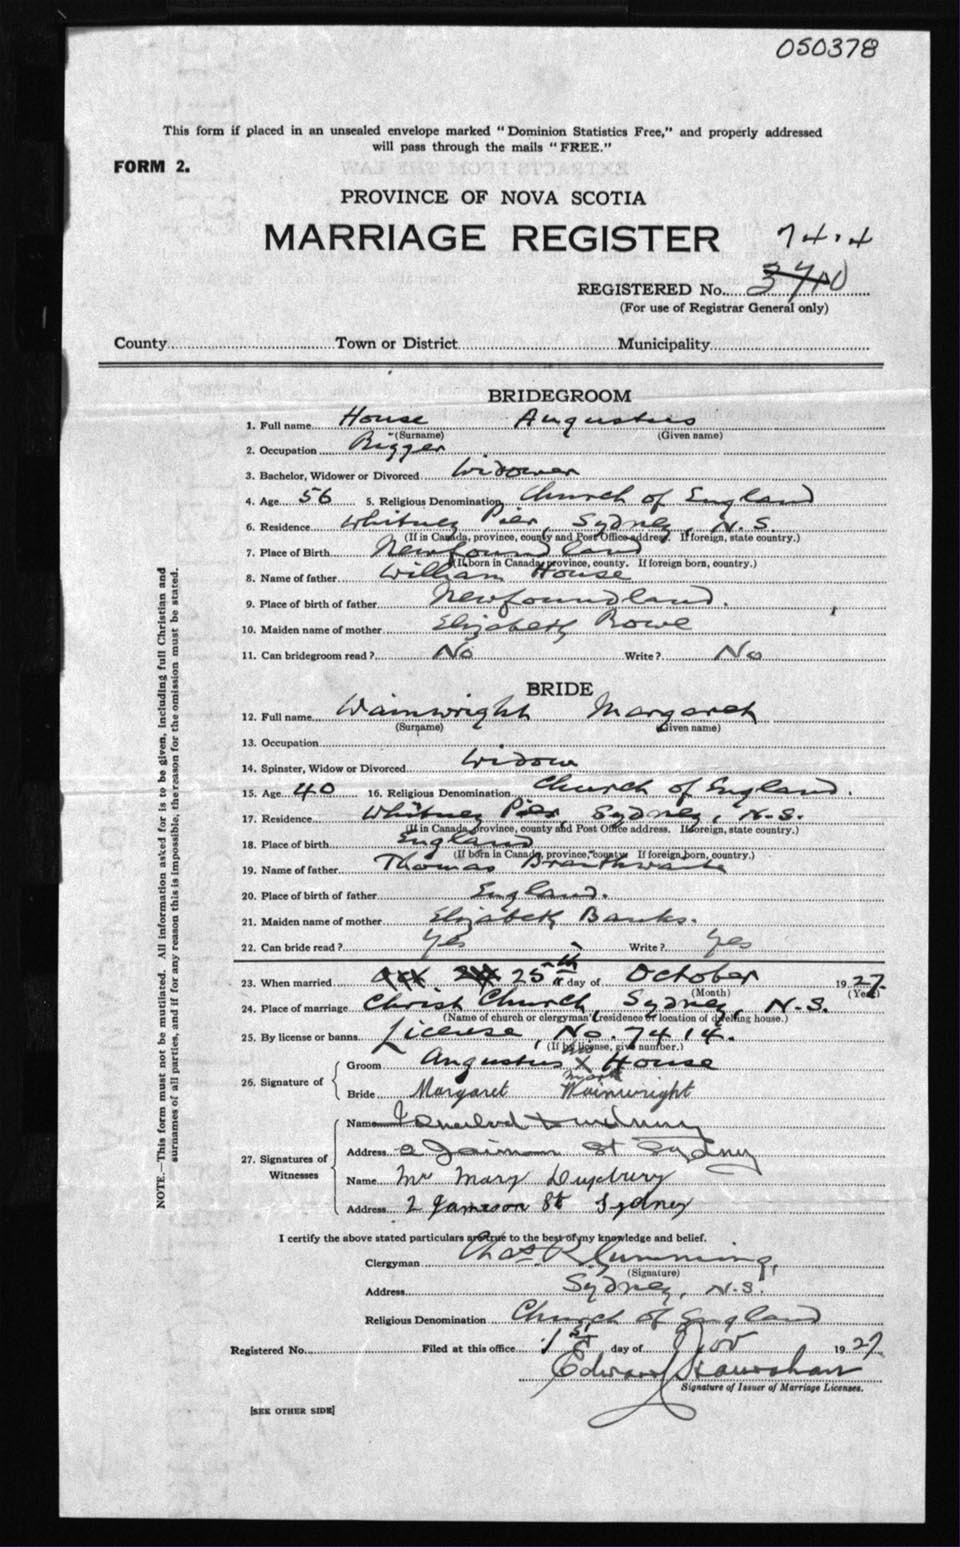 050378
This form if placed in an unsealed envelope marked "Dominion Statistics Free," and properly addressed
will pass through the mails "FREE."
FORM 2.
PROVINCE OF NOVA SCOTIA
MARRIAGE REGISTER 7414
REGISTERED No. 3710
(For use of Registrar General only)
County Town or District Municipality
BRIDEGROOM
1. Full name House Augustus
(Surname) (Given name)
2. Occupation Rigger
3. Bachelor, Widower or Divorced Widower
4. Age 56 5. Religious Denomination Church of England
6. Residence Whitney Pier, Sydney, N.S.
(If in Canada, province, county and Post Office address. If foreign, state country.)
7. Place of Birth Newfoundland
(If born in Canada, province, county. If foreign born, country.)
8. Name of father William House
9. Place of birth of father Newfoundland.
10. Maiden name of mother Elizabeth Rowe
11. Can bridegroom read? No Write? No
BRIDE
12. Full name Wainwright Margaret
(Surname) (Given name)
13. Occupation
14. Spinster, Widow or Divorced Widow
15. Age 40 16. Religious Denomination Church of England.
17. Residence Whitney Pier, Sydney, N.S.
(If in Canada, province, county and Post Office address. If foreign, state country.)
18. Place of birth England
(If born in Canada, province, county. If foreign born, country.)
19. Name of father Thomas Braithwaite
20. Place of birth of father England.
21. Maiden name of mother Elizabeth Banks.
22. Can bride read? Yes Write? Yes
23. When married 25th day of October 1927.
(Month) (Year)
24. Place of marriage Christ Church, Sydney, N.S.
(Name of church or clergyman's residence or location of dwelling house.)
25. By license or banns License, No. 7414.
(If by license, give number.)
26. Signature of Groom Augustus his X mark House
Bride Margaret Wainwright
27. Signatures of Witnesses
Name
Address 2 St Sydney
Name Mrs Mary Duxbury
Address 2 Jameson St Sydney
I certify the above stated particulars are true to the best of my knowledge and belief.
Clergyman Chas R. Cumming,
(Signature)
Address Sydney, N.S.
Religious Denomination Church of England
Registered No. Filed at this office 1st day of Nov 1927
Edward
Signature of Issuer of Marriage Licenses.
[SEE OTHER SIDE]
NOTE.—This form must not be mutilated. All information asked for is to be given, including full Christian and
surnames of all parties, and if for any reason this is impossible, the reason for the omission must be stated.